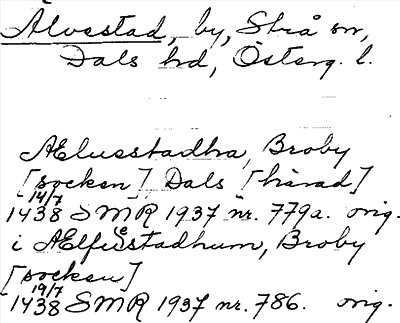 Älvestad, by, Strå sn,
Dals hd, Österg. l.
Ælusstadha, Broby
[socken] Dals [härad]
14/7
1438 SMR 1937 nr. 779a. orig.
i Ælfuestadhum, Broby
[socken]
19/7
1438 SMR 1937 nr. 786. orig.